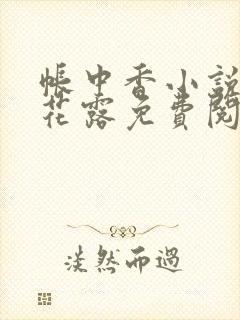 帳中香小說
花露免費閱
淡然而過